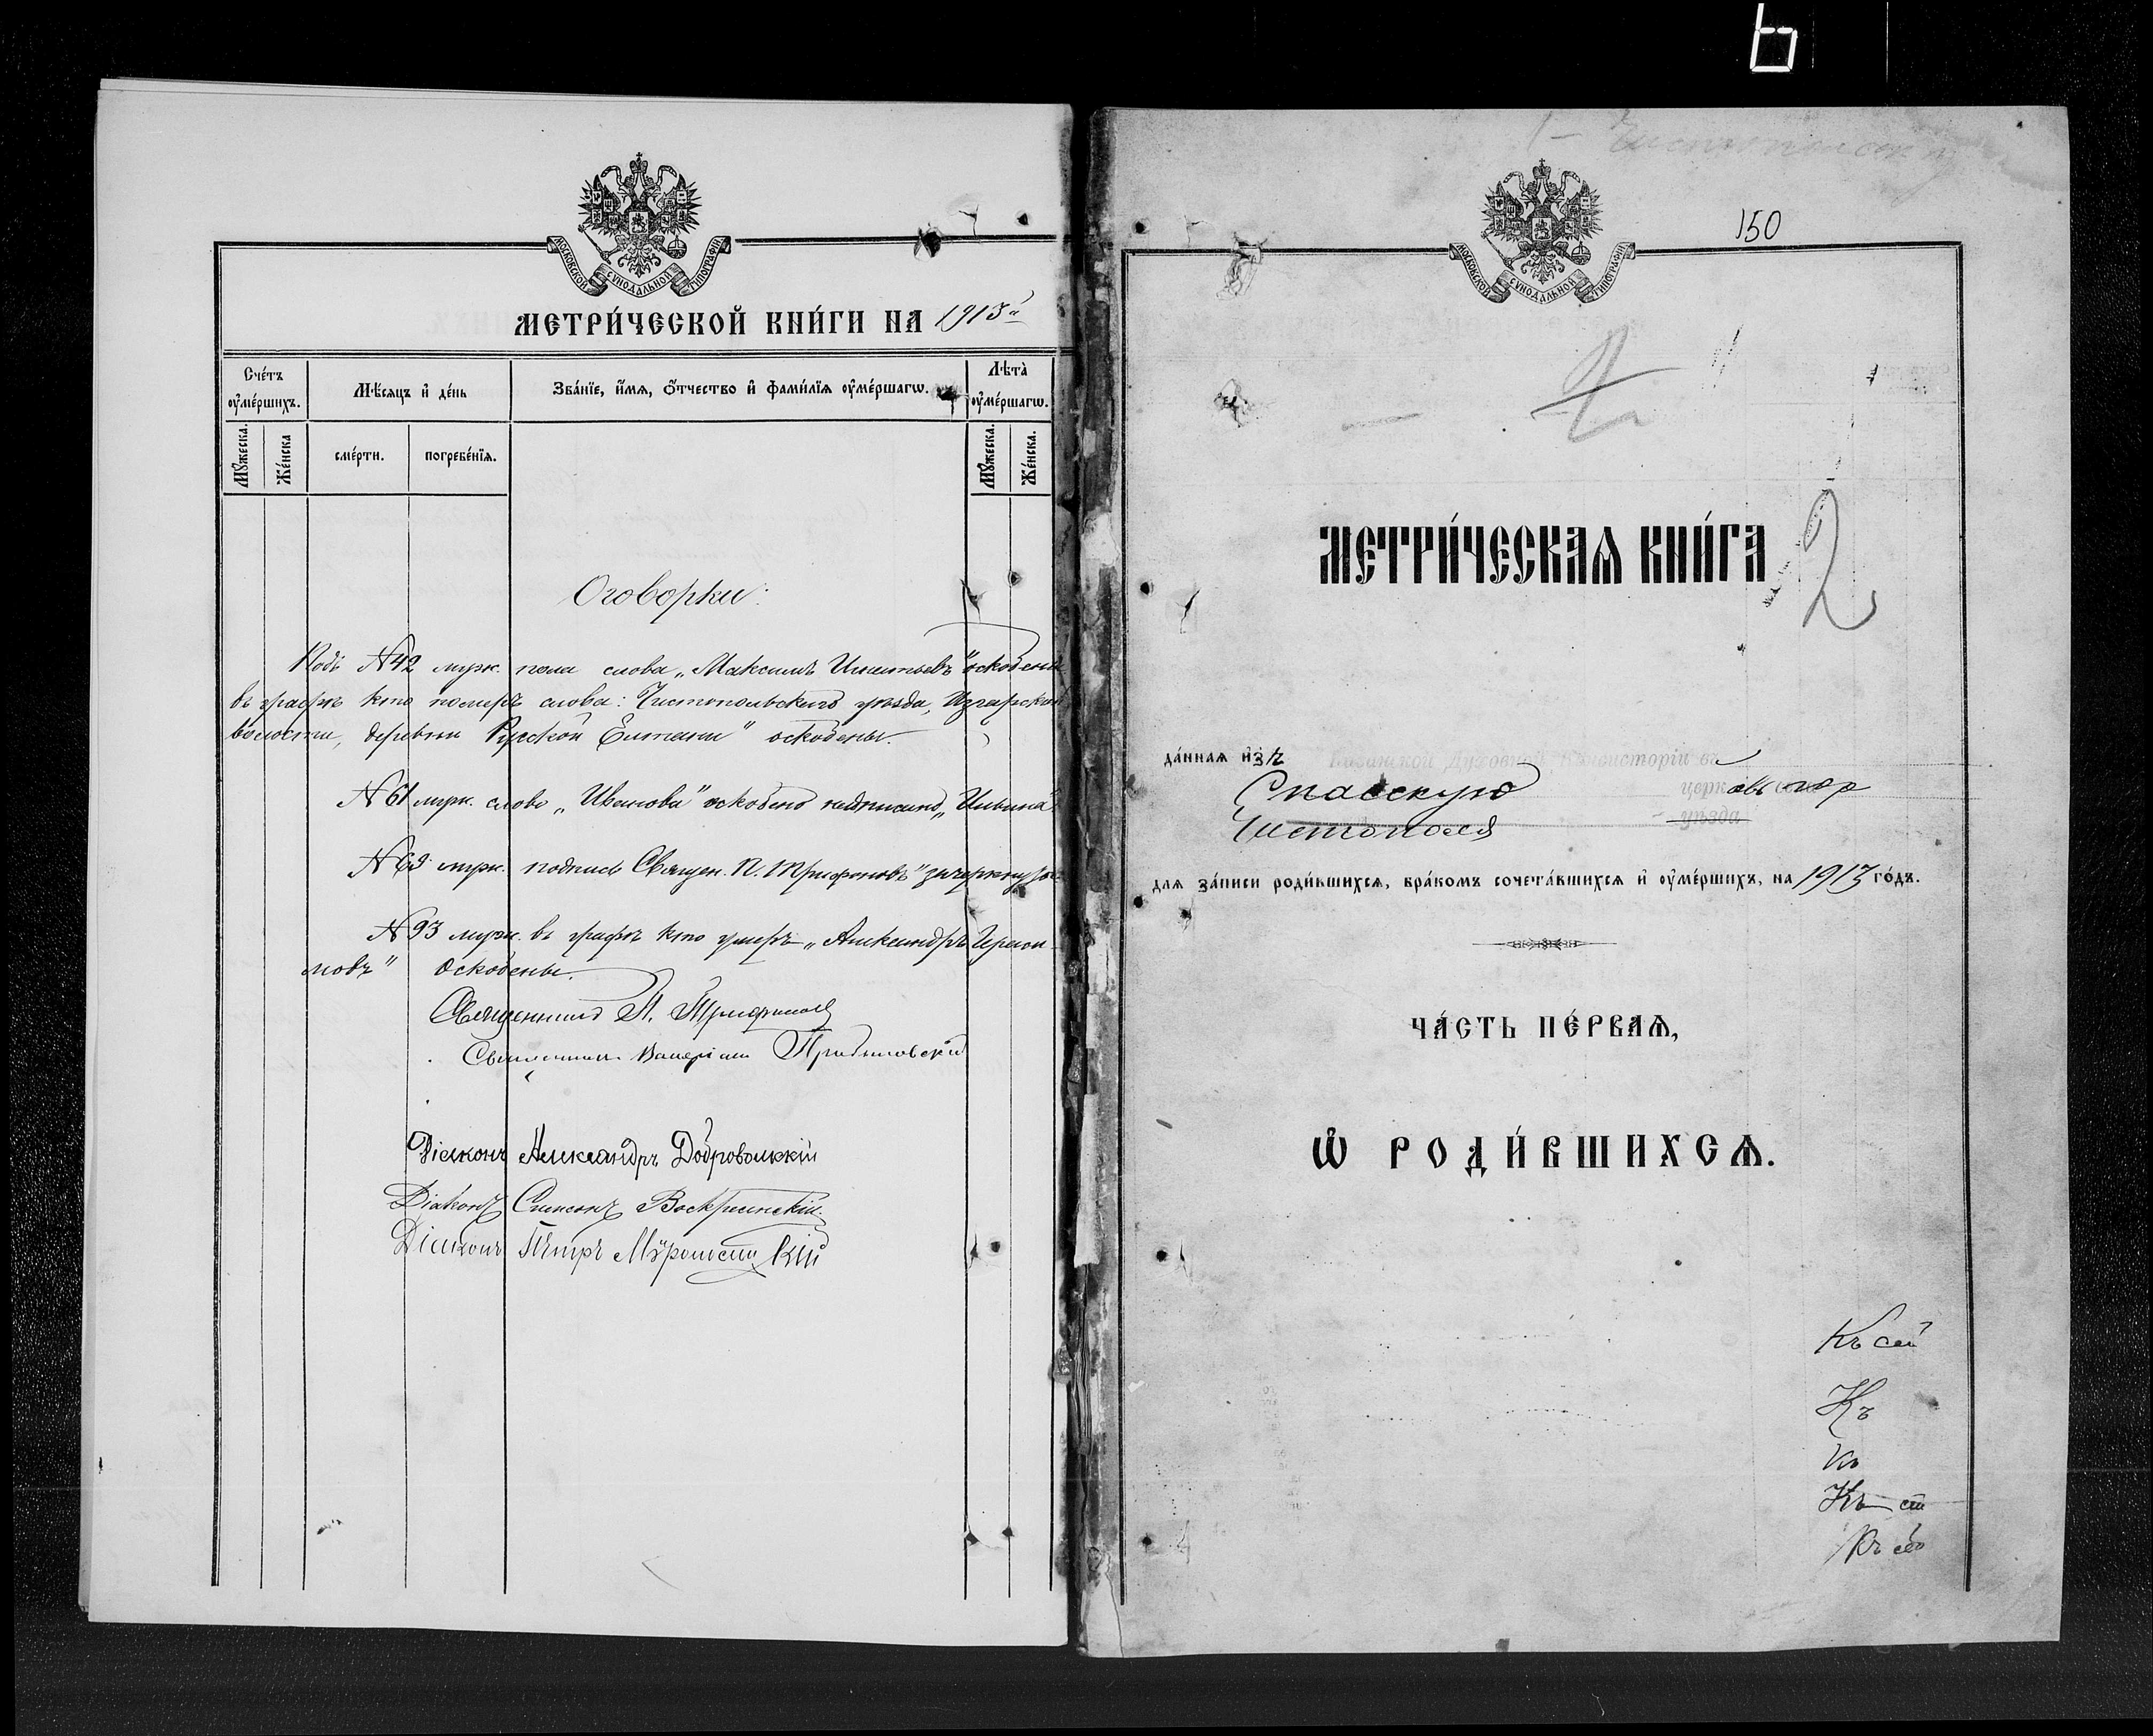 МОСКОВСКОЙ СѴНОДАЛЬНОЙ ТИПОГРАФІИ
МЕТРИ́ЧЕСКОЙ КНИ́ГИ НА 1913 г.
Сче́тъ ᲂу҆ме́ршихъ.
Мѣ́сяцъ и҆ де́нь
Зва́нїе, и҆́мѧ, ѻ҆́тчество и҆ фами́лїѧ ᲂу҆ме́ршагѡ.
Лѣта̀ ᲂу҆ме́ршагѡ.
Мꙋ́жеска.
Же́нска
сме́рти.
погребе́нїѧ.
Мꙋ́жеска.
Же́нска.
Оговорки:
Подъ №42 муж. пола слова „Максимъ Игнатьевъ" оскоблены
въ графѣ кто померъ слова: Чистопольскаго уѣзда, Изгарской
волости, деревни Русской Елтани" оскоблены.
№61 муж. слово „Иванова" оскоблено надписано „Ильина"
муж. подпись Священ. П. Трифоновъ" зачеркнуто
№93 муж. въ графѣ кто умеръ „Александръ
мовъ" оскоблены.
Священникъ П. Трифоновъ
Священникъ Валеріанъ
Діаконъ Александръ Добровольскій
Діаконъ Симеонъ Воскресенскій
Діаконъ Петръ
6
Чистополск
150
МОСКОВСКОЙ СѴНОДАЛЬНОЙ ТИПОГРАФІИ
МЕТРИ́ЧЕСКАѦ КНИ́ГА
2
да́нная и҆зъ Казанской Духовной Консисторіи въ
Спасскую церковь гор
Чистополя уѣзда
для за́писи роди́вшихсѧ, бра́комъ сочета́вшихсѧ и҆ ᲂу҆ме́ршихъ, на 1913 го́дъ.
ЧА́СТЬ ПЕ́РВАѦ,
Ѡ҆ РОДИ́ВШИХСѦ.
Къ сей
Къ
Къ
Къ
Къ